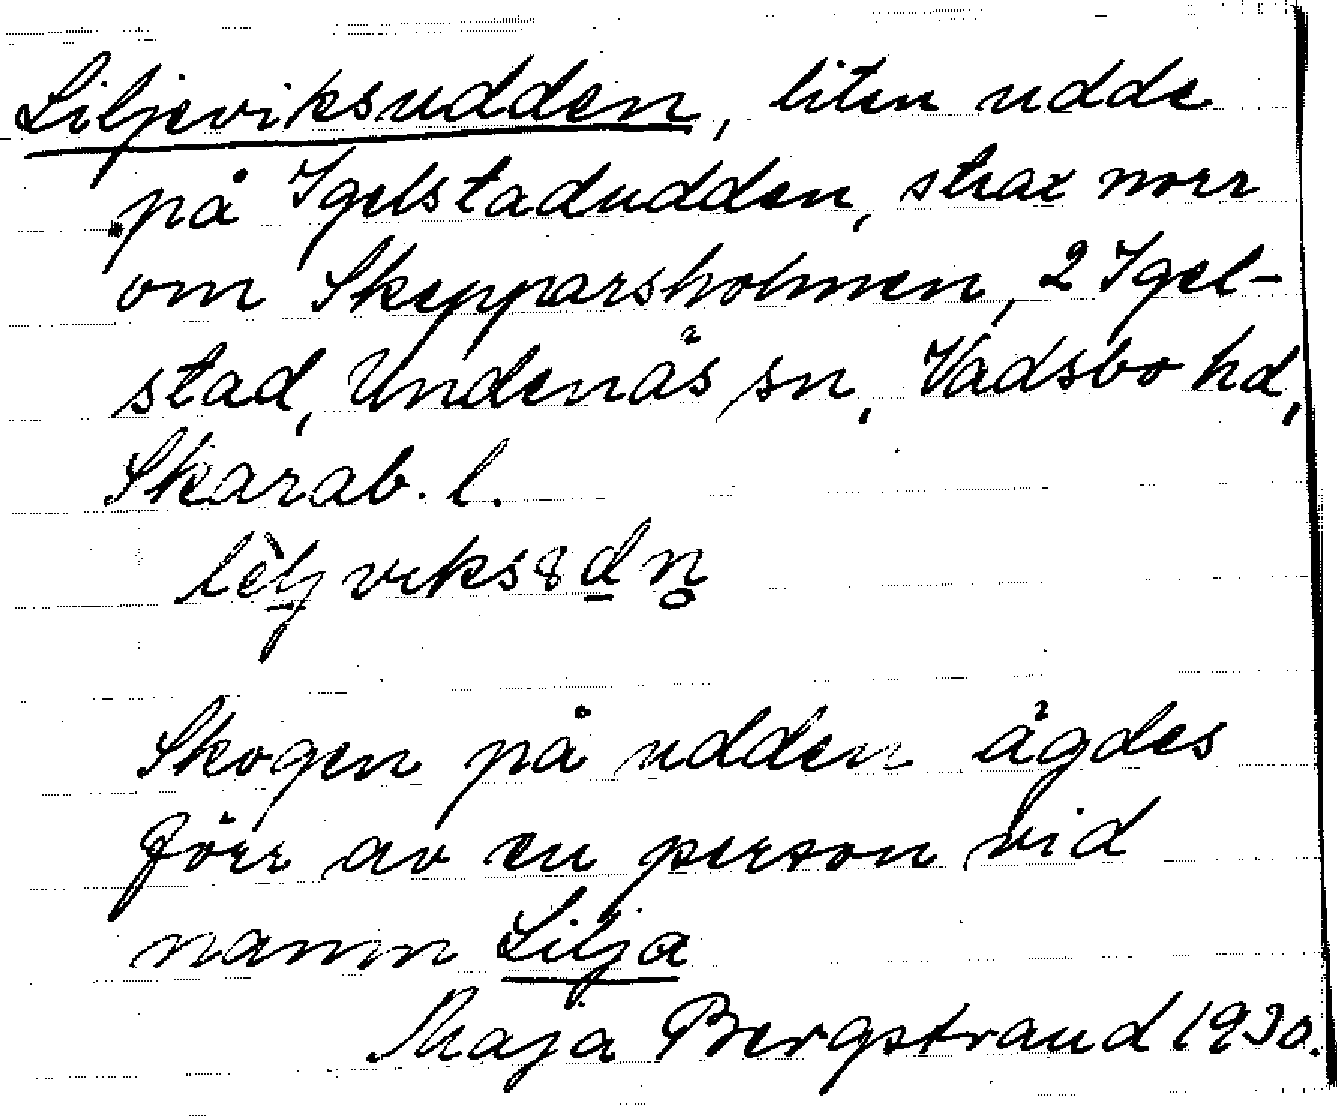 Liljeviksudden, liten udde
på Igelstadudden, strax norr
om Skepparsholmen, 2 Igel-
stad, Undenäs sn, Vadsbo hd,
Skarab. l.
Skogen på udden ägdes
förr av en person vid
namn Lilja
Maja Bergstrand 1930.